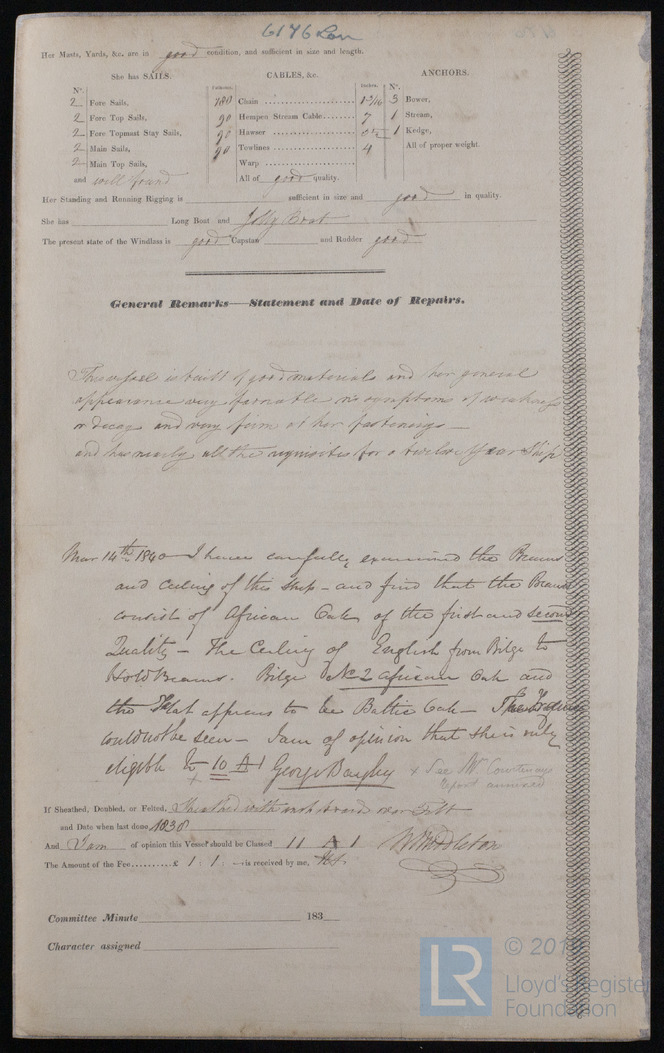 6176 Lon
Her Masts, Yards, &c. are in good condition, and sufficient in size and length.
She has SAILS. CABLES, &c. ANCHORS.
N°. Fathoms. Inches. N°.
2 Fore Sails, 180 Chain 1 5/16 3 Bower,
2 Fore Top Sails, 90 Hempen Stream Cable 7 1 Stream,
2 Fore Topmast Stay Sails, 90 Hawser 1 Kedge,
2 Main Sails, 90 Towlines 4 All of proper weight.
2 Main Top Sails, Warp
and well found All of good quality.
Her Standing and Running Rigging is sufficient in size and good in quality.
She has Long Boat and Jolly Boat
The present state of the Windlass is good Capstan and Rudder good
General Remarks—Statement and Date of Repairs.
This vessel is built of good materials and her general
appearance very favorable no symptoms of weakness
or decay and very firm at her fastenings —
and has nearly all the requisites for a twelve Year Ship
Mar 14th 1840 I have carefully examined the Beams
and Ceiling of this Ship – and find that the Beams
consist of African Oak of the first and second
Quality – The Ceiling of English from Bilge to
Hold Beams. Bilge No 2 African Oak and
the Flat appears to be Baltic Oak –
could not be seen – I am of opinion that she is only
eligible to 10 A 1 George Bayley + See Mr. Courtenay
Report annexed
If Sheathed, Doubled, or Felted, Sheathed with over Felt
and Date when last done 1838
And I am of opinion this Vessel should be Classed 11 A 1 W Middleton
The Amount of the Fee £ 1 : 1 : — is received by me,
Committee Minute 183
Character assigned
LR
© 201
Lloyd's Register
Foundation